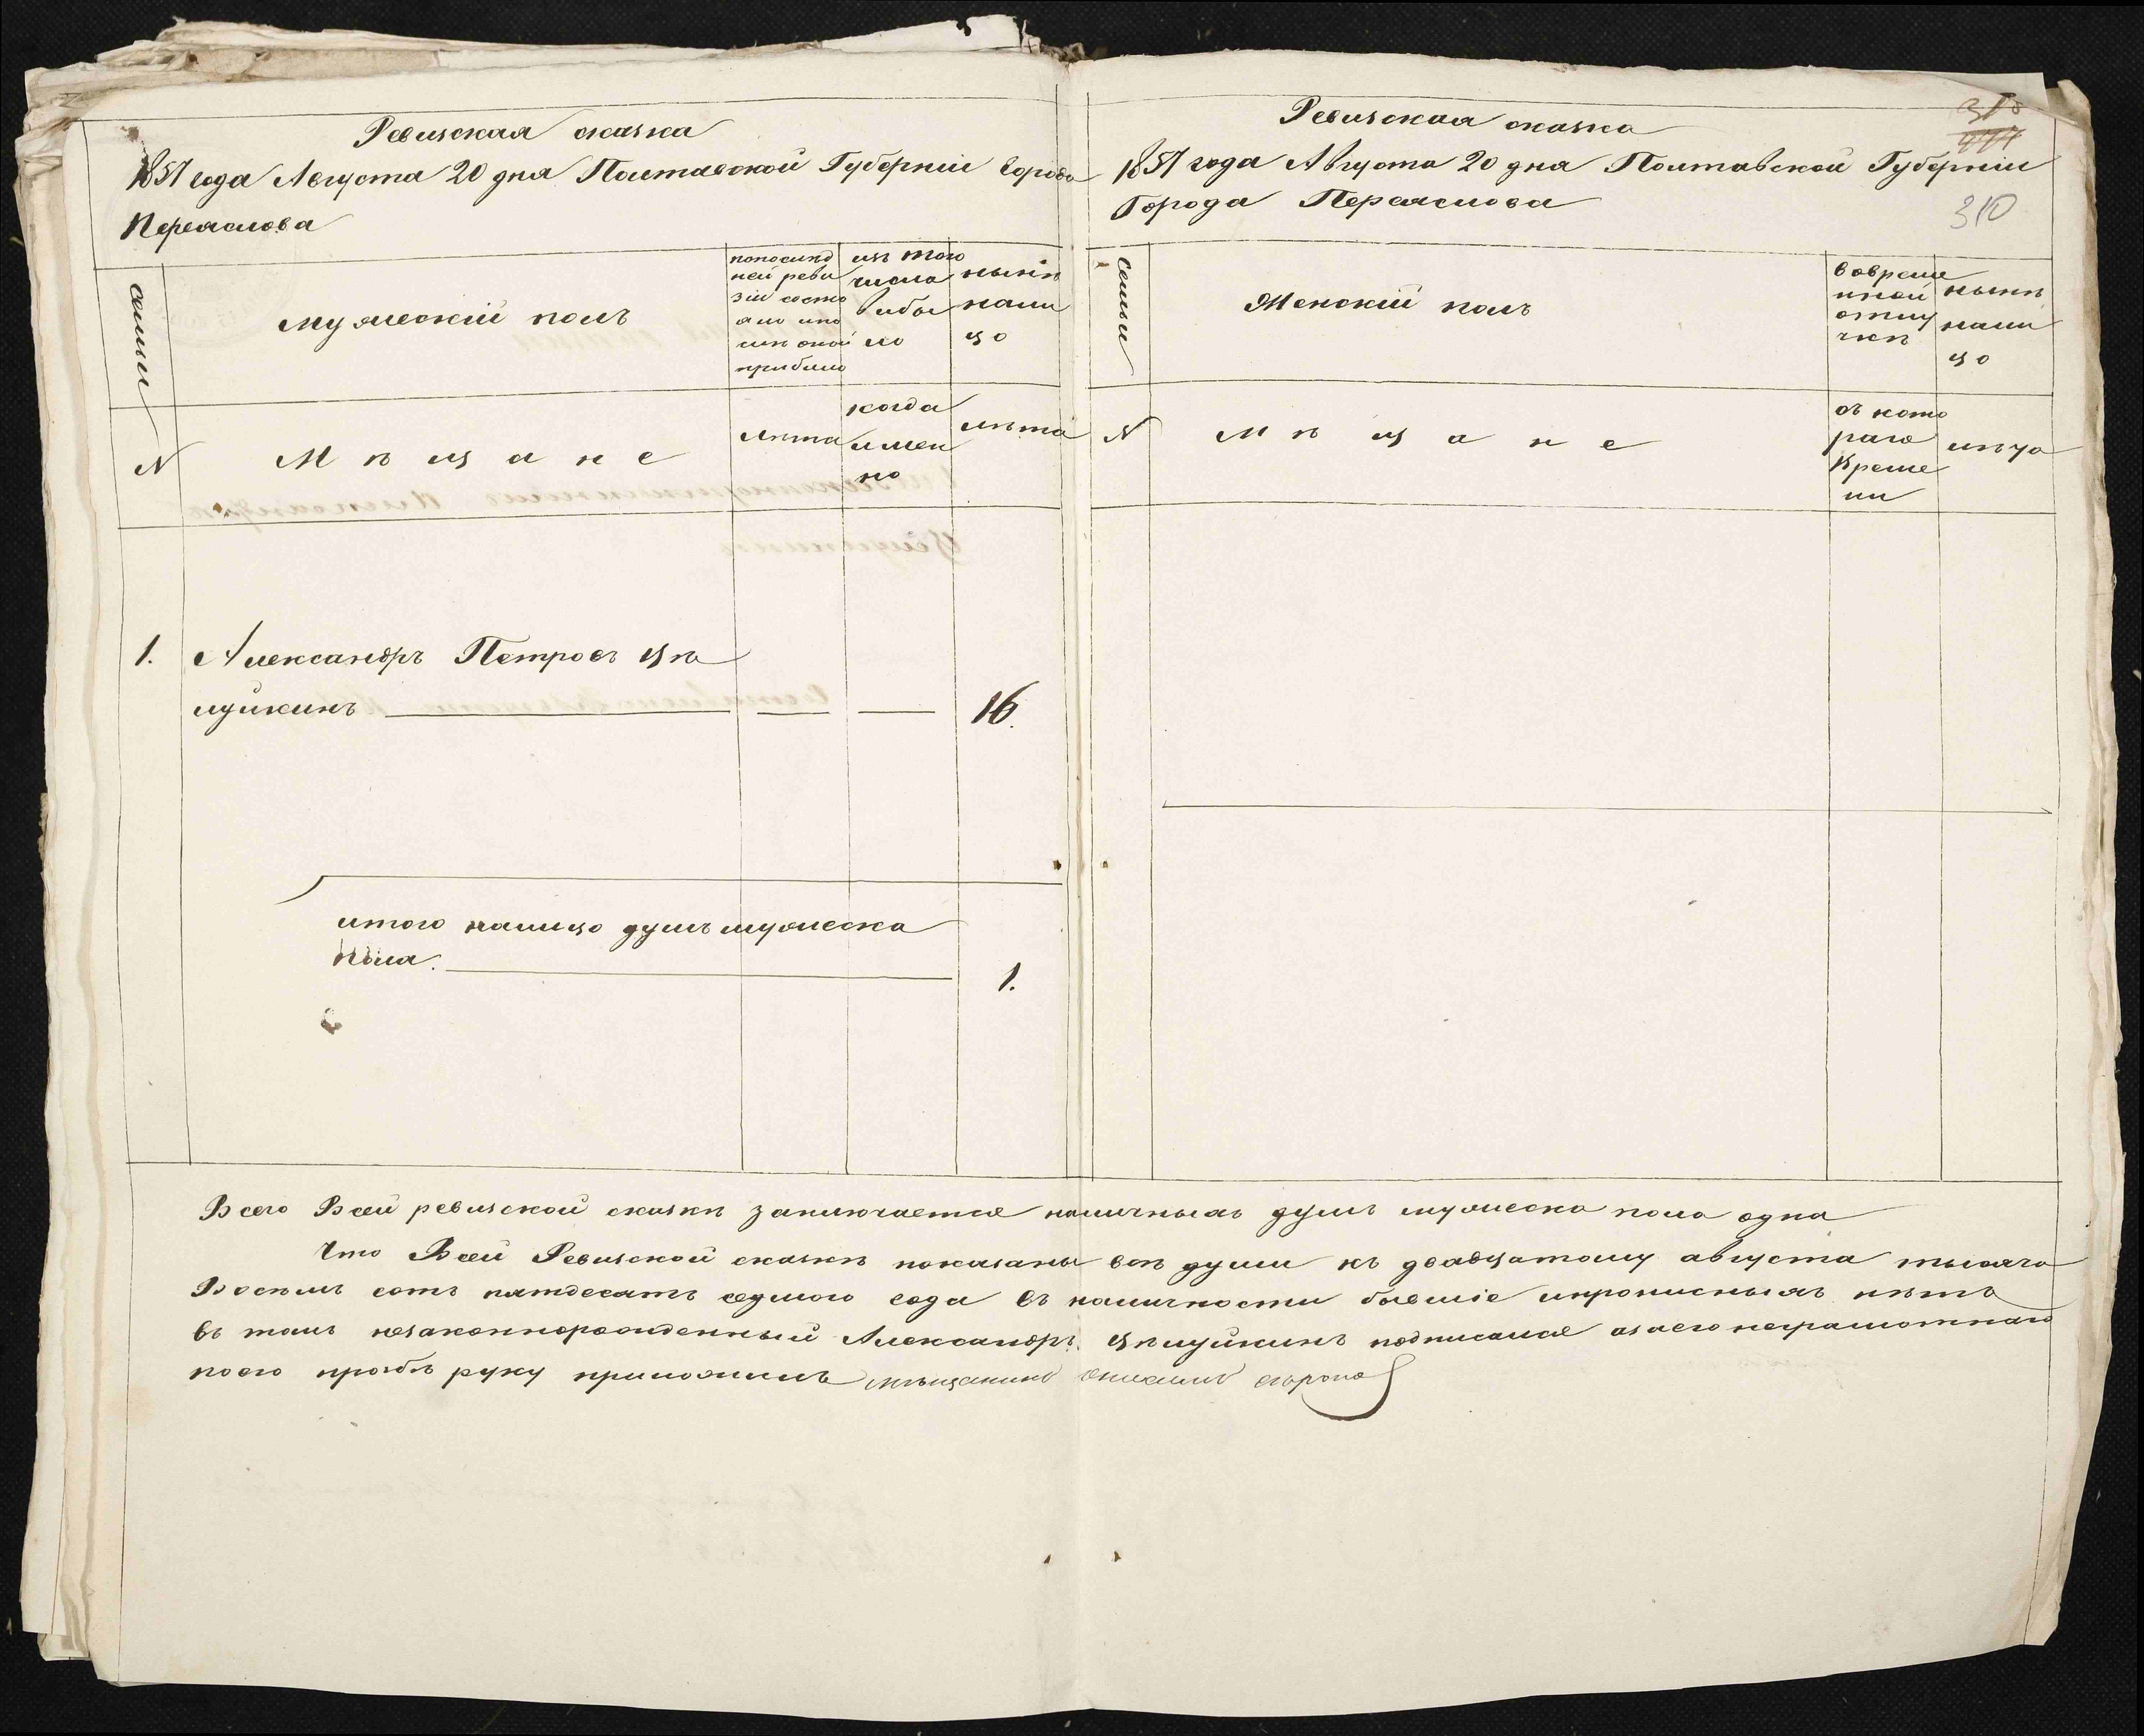 Ревизская сказка
1857 года Августа 20 дня Полтавской Губернiи Города
Переяслова
семьи
Мужескiй полъ
попослѣд
ней реви
зiи состо
яло ипо
слѣ оной
прибыло
изъ того
числа
выбы
ло
нынѣ
нали
цо
N
Мѣщане
лѣта
когда
имен
но
лѣта
1. Александръ Петровъ Цѣ
луйкинъ 16.
итого налицо душъ мужеска
пола. 1.
Ревизская сказка
1857 года Августа 20 дня Полтавской Губернiи
Города Переяслова
318
310
семьи
Женскiй полъ
вовреме
нной
отлу
чкѣ
нынѣ
нали
цо
N
Мѣщане
съ кото
раго
време
ни
лѣта
Всего Всей ревизской сказкѣ заключается наличныхъ душъ мужеска пола одна
Что Всей Ревизской сказкѣ показаны всѣ души къ двадцатому августа тысяча
Восемъ сотъ пятдесятъ седмого года въ наличности бывшiе ипрописныхъ нѣтъ
въ томъ незаконнорожденный Александръ Цѣлуйкинъ подписался азаего неграмотнаго
поего прозбѣ руку приложилъ мѣщанинъ